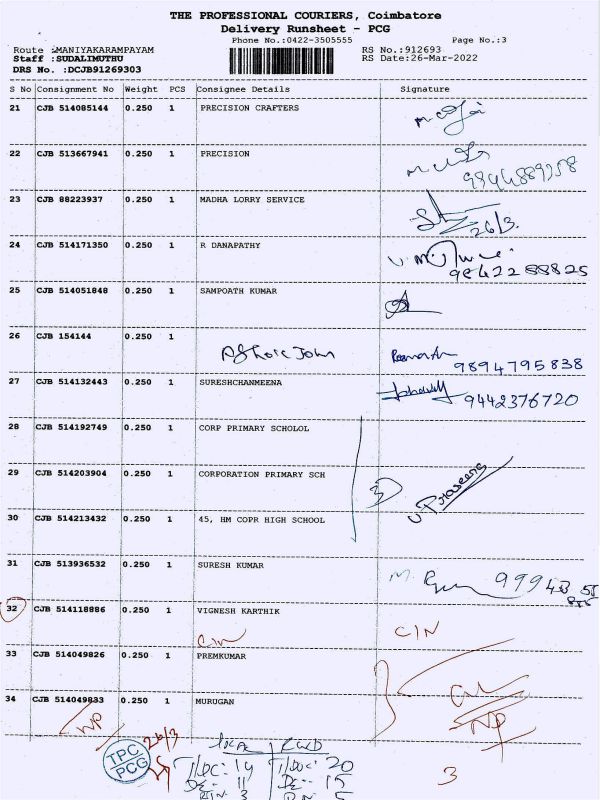 THE PROFESSIONAL COURIERS, Coimbatore
Delivery Runsheet - PCG
Phone No.:0422-3505555 Page No.:3
Route :MANIYAKARAMPAYAM RS No.:912693
Staff :SUDALIMUTHU RS Date:26-Mar-2022
DRS No. :DCJB91269303
S No Consignment No Weight PCS Consignee Details Signature
21 CJB 514085144 0.250 1 PRECISION CRAFTERS
22 CJB 513667941 0.250 1 PRECISION
23 CJB 88223937 0.250 1 MADHA LORRY SERVICE
26/3.
24 CJB 514171350 0.250 1 R DANAPATHY
25 CJB 514051848 0.250 1 SAMPOATH KUMAR
26 CJB 154144 0.250 1
9894795838
27 CJB 514132443 0.250 1 SURESHCHANMEENA
9442376720
28 CJB 514192749 0.250 1 CORP PRIMARY SCHOLOL
29 CJB 514203904 0.250 1 CORPORATION PRIMARY SCH
3
30 CJB 514213432 0.250 1 45, HM COPR HIGH SCHOOL
31 CJB 513936532 0.250 1 SURESH KUMAR
32 CJB 514118886 0.250 1 VIGNESH KARTHIK
C/N C/N
33 CJB 514049826 0.250 1 PREMKUMAR
34 CJB 514049833 0.250 1 MURUGAN
NP NP
TPC
PCG
26/3
3